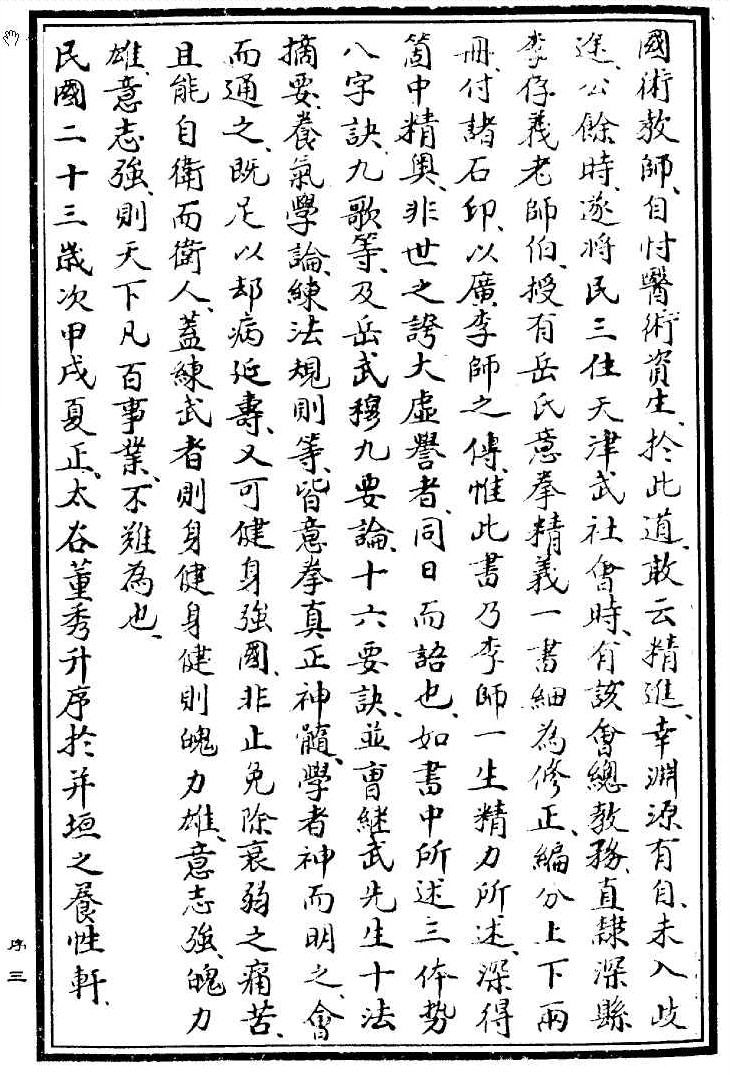 國術教師、自忖醫術資生、於此道、敢云精進、幸淵源有自、未入歧
途、公餘時、遂將民三住天津武社會時、有該會總教務、直隸深縣
李存義老師伯、授有岳氏意拳精義一書細為修正、編分上下兩
冊、付諸石印、以廣李師之傳、惟此書乃李師一生精力所述、深得
箇中精奧、非世之誇大虛譽者、同日而語也、如書中所述三体勢
八字訣、九歌等、及岳武穆九要論、十六要訣、並曹繼武先生十法
摘要、養氣學論、練法規則等、皆意拳真正神髓、學者神而明之、會
而通之、既足以却病延壽、又可健身強國、非止免除衰弱之痛苦、
且能自衛而衛人、蓋練武者則身健身健則魄力雄、意志強、魄力
雄、意志強、則天下凡百事業、不難為也、
民國二十三歲次甲戌夏正、太谷董秀升序於并垣之養性軒、
序 三